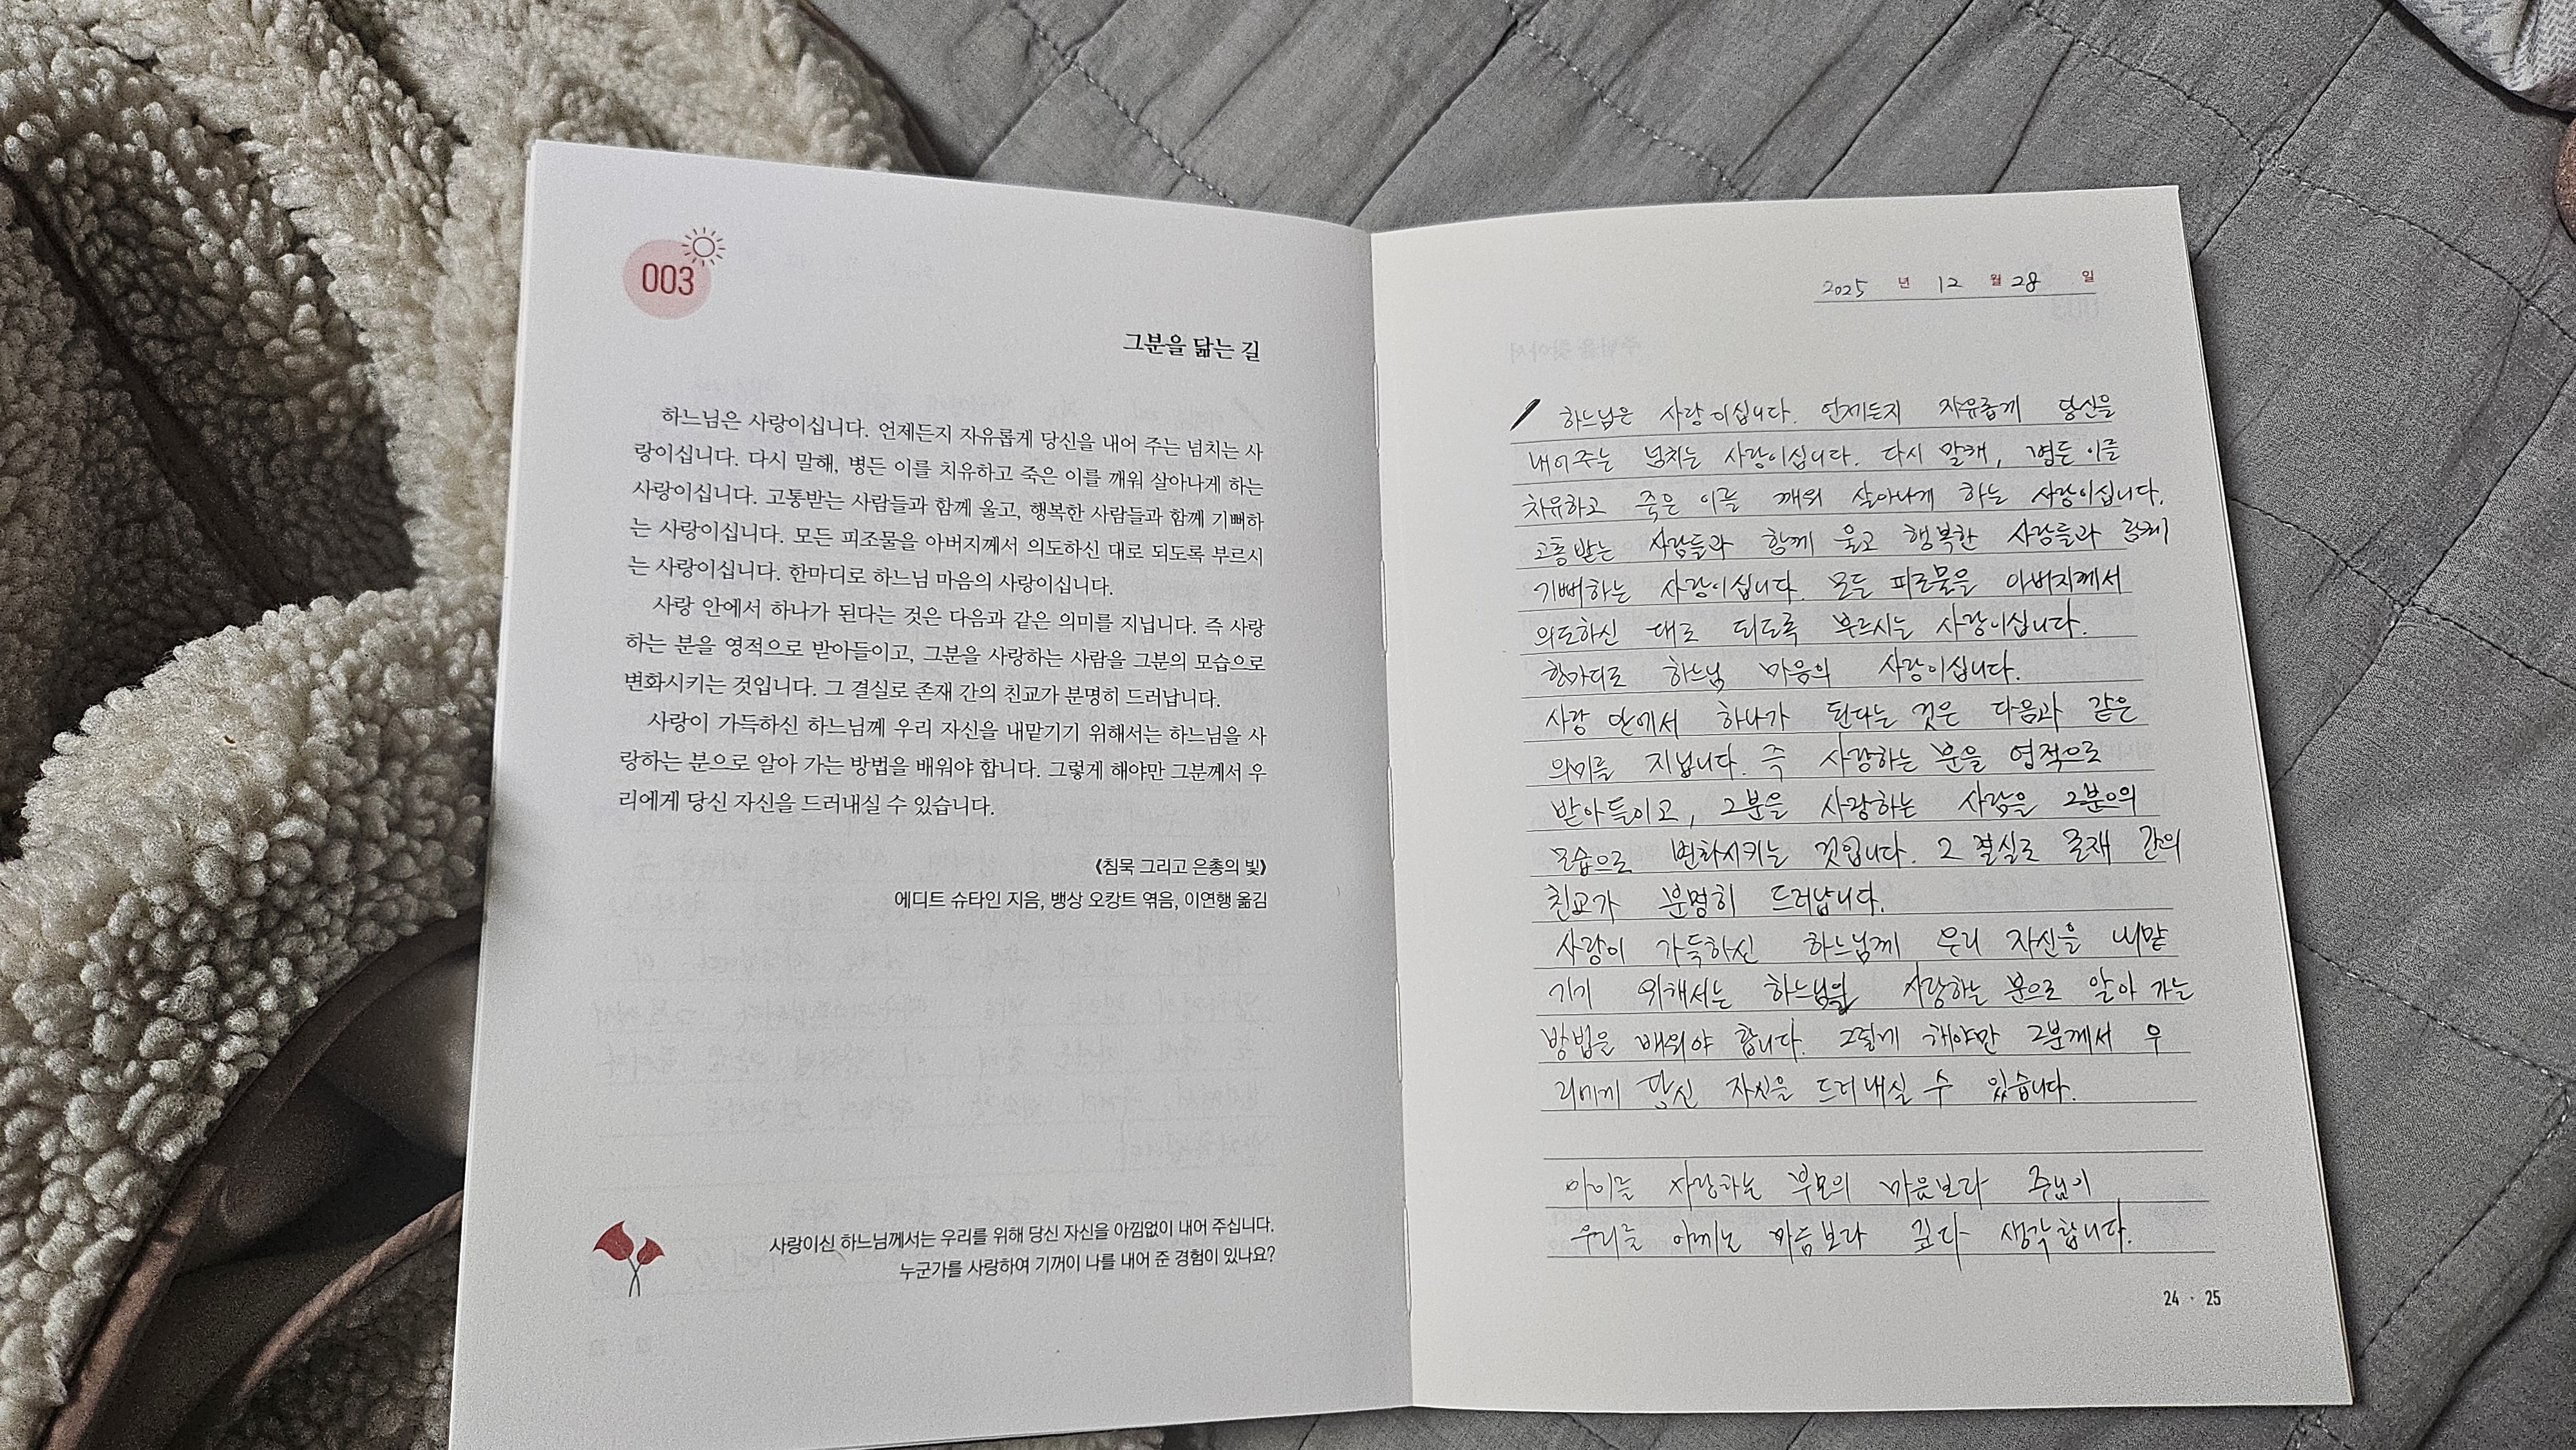 003
그분을 닮는 길
하느님은 사랑이십니다. 언제든지 자유롭게 당신을 내어 주는 넘치는 사
랑이십니다. 다시 말해, 병든 이를 치유하고 죽은 이를 깨워 살아나게 하는
사랑이십니다. 고통받는 사람들과 함께 울고, 행복한 사람들과 함께 기뻐하
는 사랑이십니다. 모든 피조물을 아버지께서 의도하신 대로 되도록 부르시
는 사랑이십니다. 한마디로 하느님 마음의 사랑이십니다.
사랑 안에서 하나가 된다는 것은 다음과 같은 의미를 지닙니다. 즉 사랑
하는 분을 영적으로 받아들이고, 그분을 사랑하는 사람을 그분의 모습으로
변화시키는 것입니다. 그 결실로 존재 간의 친교가 분명히 드러납니다.
사랑이 가득하신 하느님께 우리 자신을 내맡기기 위해서는 하느님을 사
랑하는 분으로 알아 가는 방법을 배워야 합니다. 그렇게 해야만 그분께서 우
리에게 당신 자신을 드러내실 수 있습니다.
《침묵 그리고 은총의 빛》
에디트 슈타인 지음, 뱅상 오캉트 엮음, 이연행 옮김
사랑이신 하느님께서는 우리를 위해 당신 자신을 아낌없이 내어 주십니다.
누군가를 사랑하여 기꺼이 나를 내어 준 경험이 있나요?
2025 년 12 월 28 일
하느님은 사랑이십니다. 언제든지 자유롭게 당신을
내어주는 넘치는 사랑이십니다. 다시 말해, 병든 이를
치유하고 죽은 이를 깨워 살아나게 하는 사랑이십니다.
고통받는 사람들과 함께 울고 행복한 사람들과 함께
기뻐하는 사랑이십니다. 모든 피조물을 아버지께서
의도하신 대로 되도록 부르시는 사랑이십니다.
한마디로 하느님 마음의 사랑이십니다.
사랑 안에서 하나가 된다는 것은 다음과 같은
의미를 지닙니다. 즉 사랑하는 분을 영적으로
받아들이고, 그분을 사랑하는 사람을 그분의
모습으로 변화시키는 것입니다. 그 결실로 존재 간의
친교가 분명히 드러납니다.
사랑이 가득하신 하느님께 우리 자신을 내맡
기기 위해서는 하느님을 사랑하는 분으로 알아 가는
방법을 배워야 합니다. 그렇게 해야만 그분께서 우
리에게 당신 자신을 드러내실 수 있습니다.
아이를 사랑하는 부모의 마음보다 주님이
우리를 아끼는 마음보다 깊다 생각합니다.
24 · 25